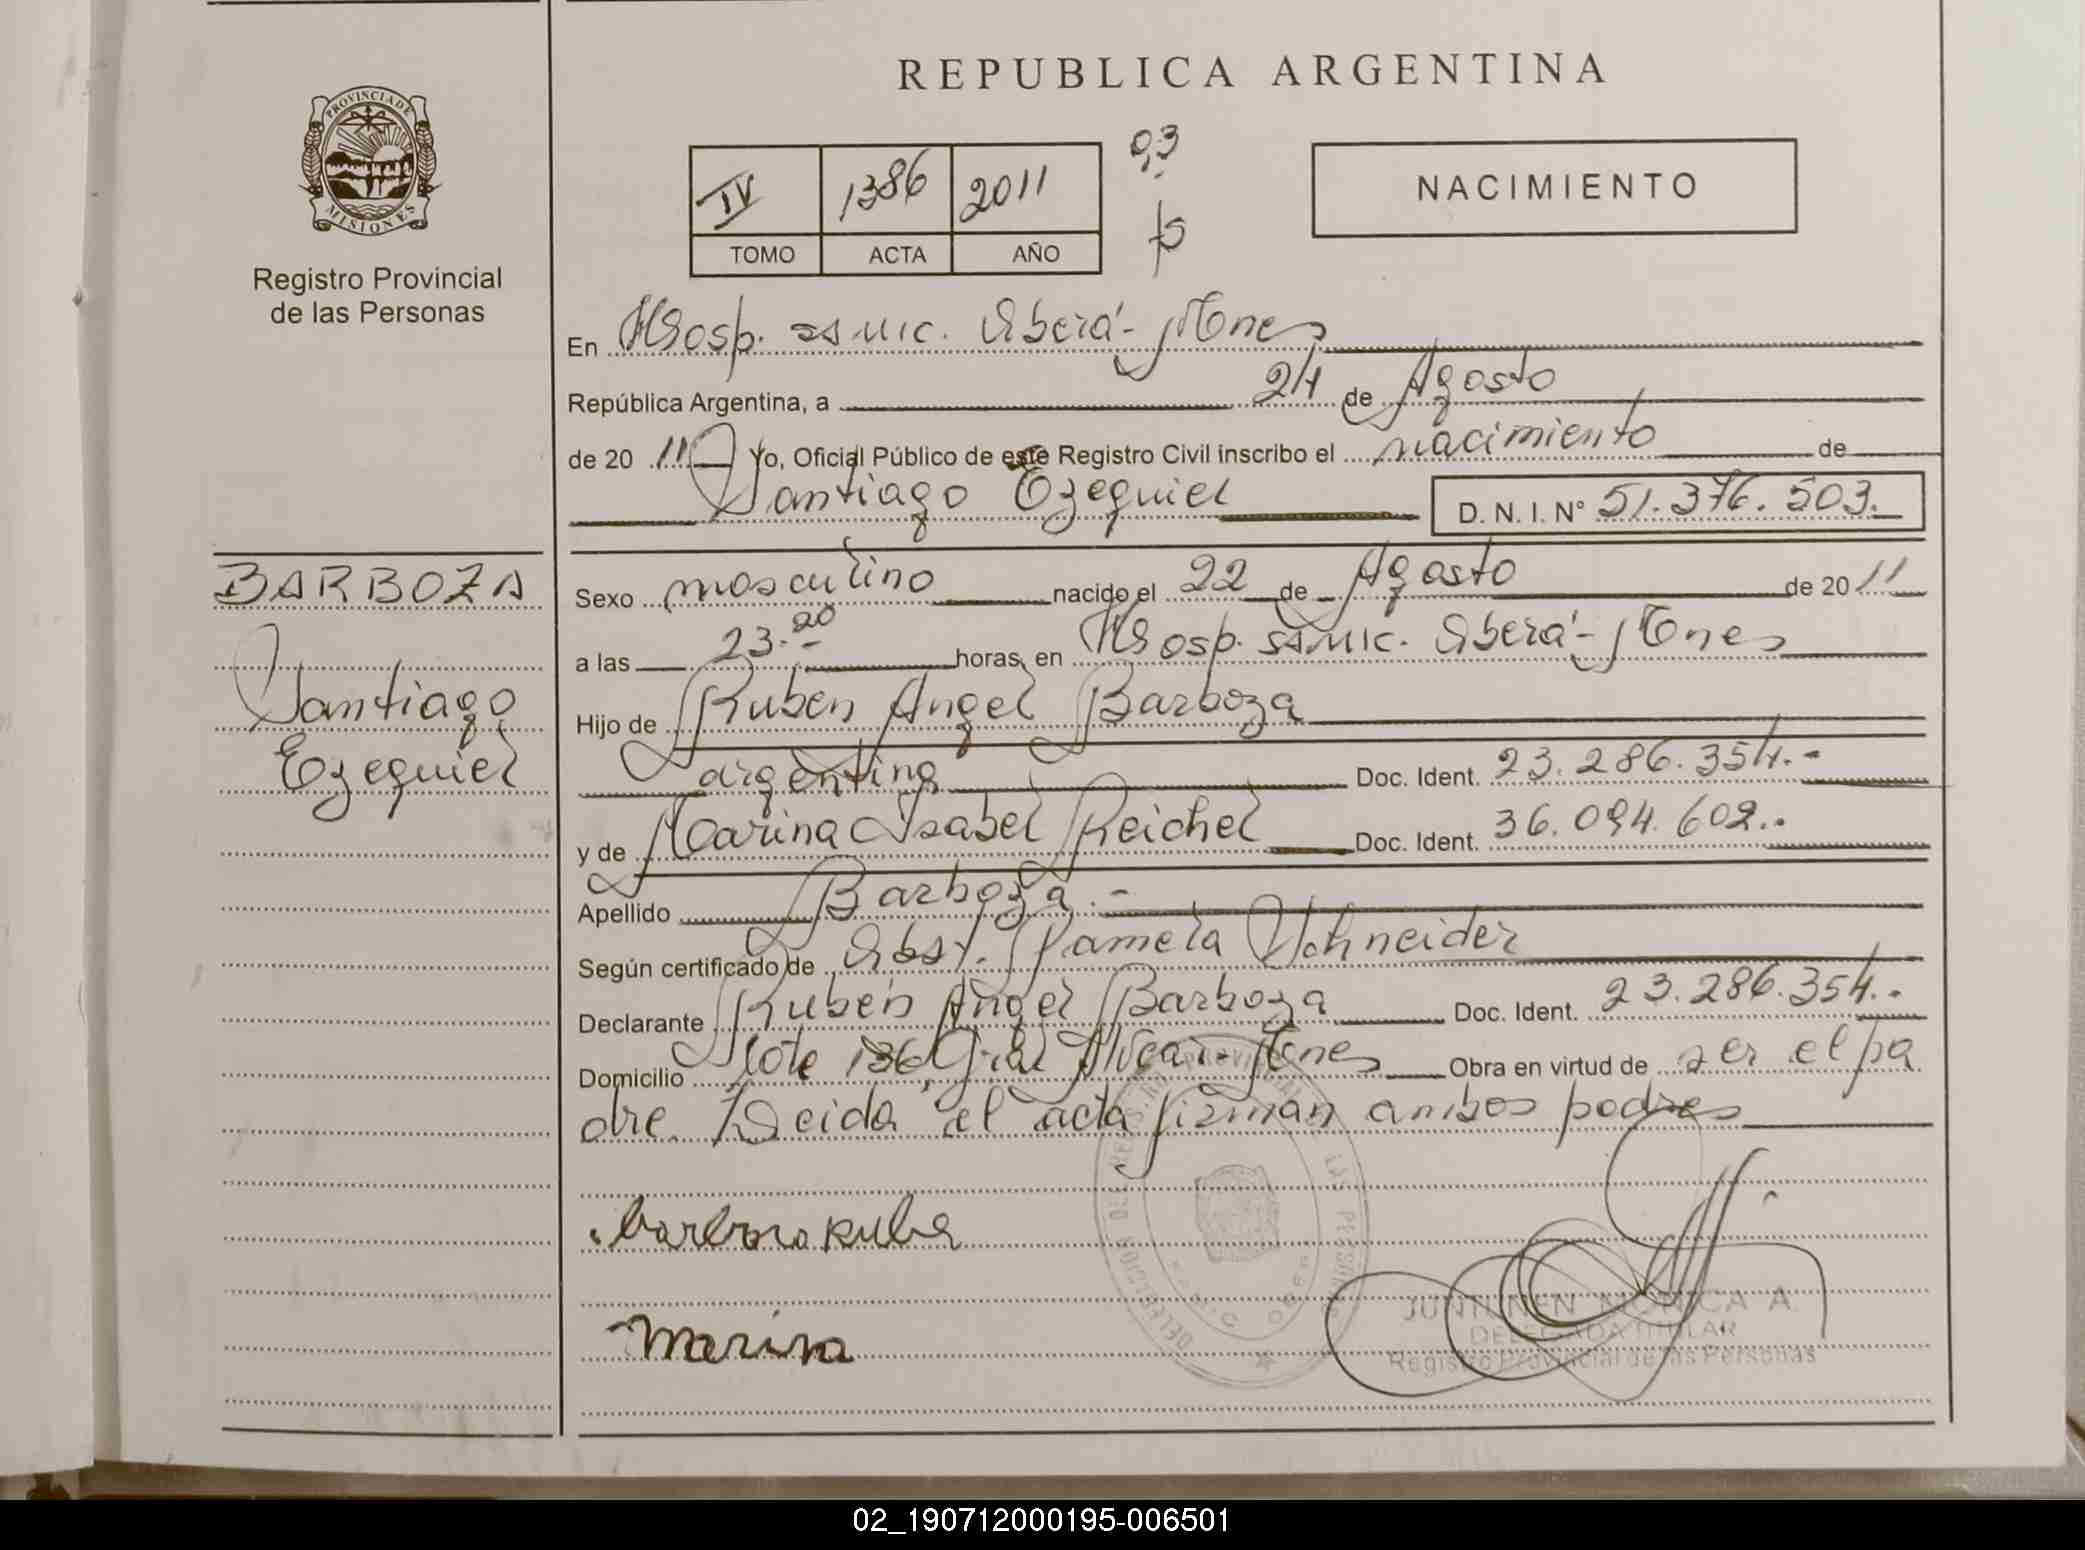 REPUBLICA ARGENTINA
PROVINCIA DE
MISIONES
Registro Provincial
de las Personas
IV 1386 2011
TOMO ACTA AÑO
03
NACIMIENTO
En Hosp. SAMIC. Oberá - Mnes
República Argentina, a 24 de Agosto
de 20 11 Yo, Oficial Público de este Registro Civil inscribo el nacimiento de
Santiago Ezequiel D. N. I. N° 51.376.503.
BARBOZA
Santiago
Ezequiel
Sexo masculino nacido el 22 de Agosto de 20 11
a las 23.20 horas, en Hosp. SAMIC. Oberá - Mnes
Hijo de Ruben Angel Barboza
argentina Doc. Ident. 23.286.354.-
y de Marina Isabel Reichel Doc. Ident. 36.094.602.-
Apellido Barboza.-
Según certificado de Obst. Pamela Schneider
Declarante Ruben Angel Barboza Doc. Ident. 23.286.354.-
Domicilio Lote 136, Gral Alvear - Mnes Obra en virtud de ser el pa
dre. Leida el acta firman ambos padres
barboza rube
Marina
JUNTUNEN MONICA A.
DELEGADA TITULAR
Registro Provincial de las Personas
02_190712000195-006501